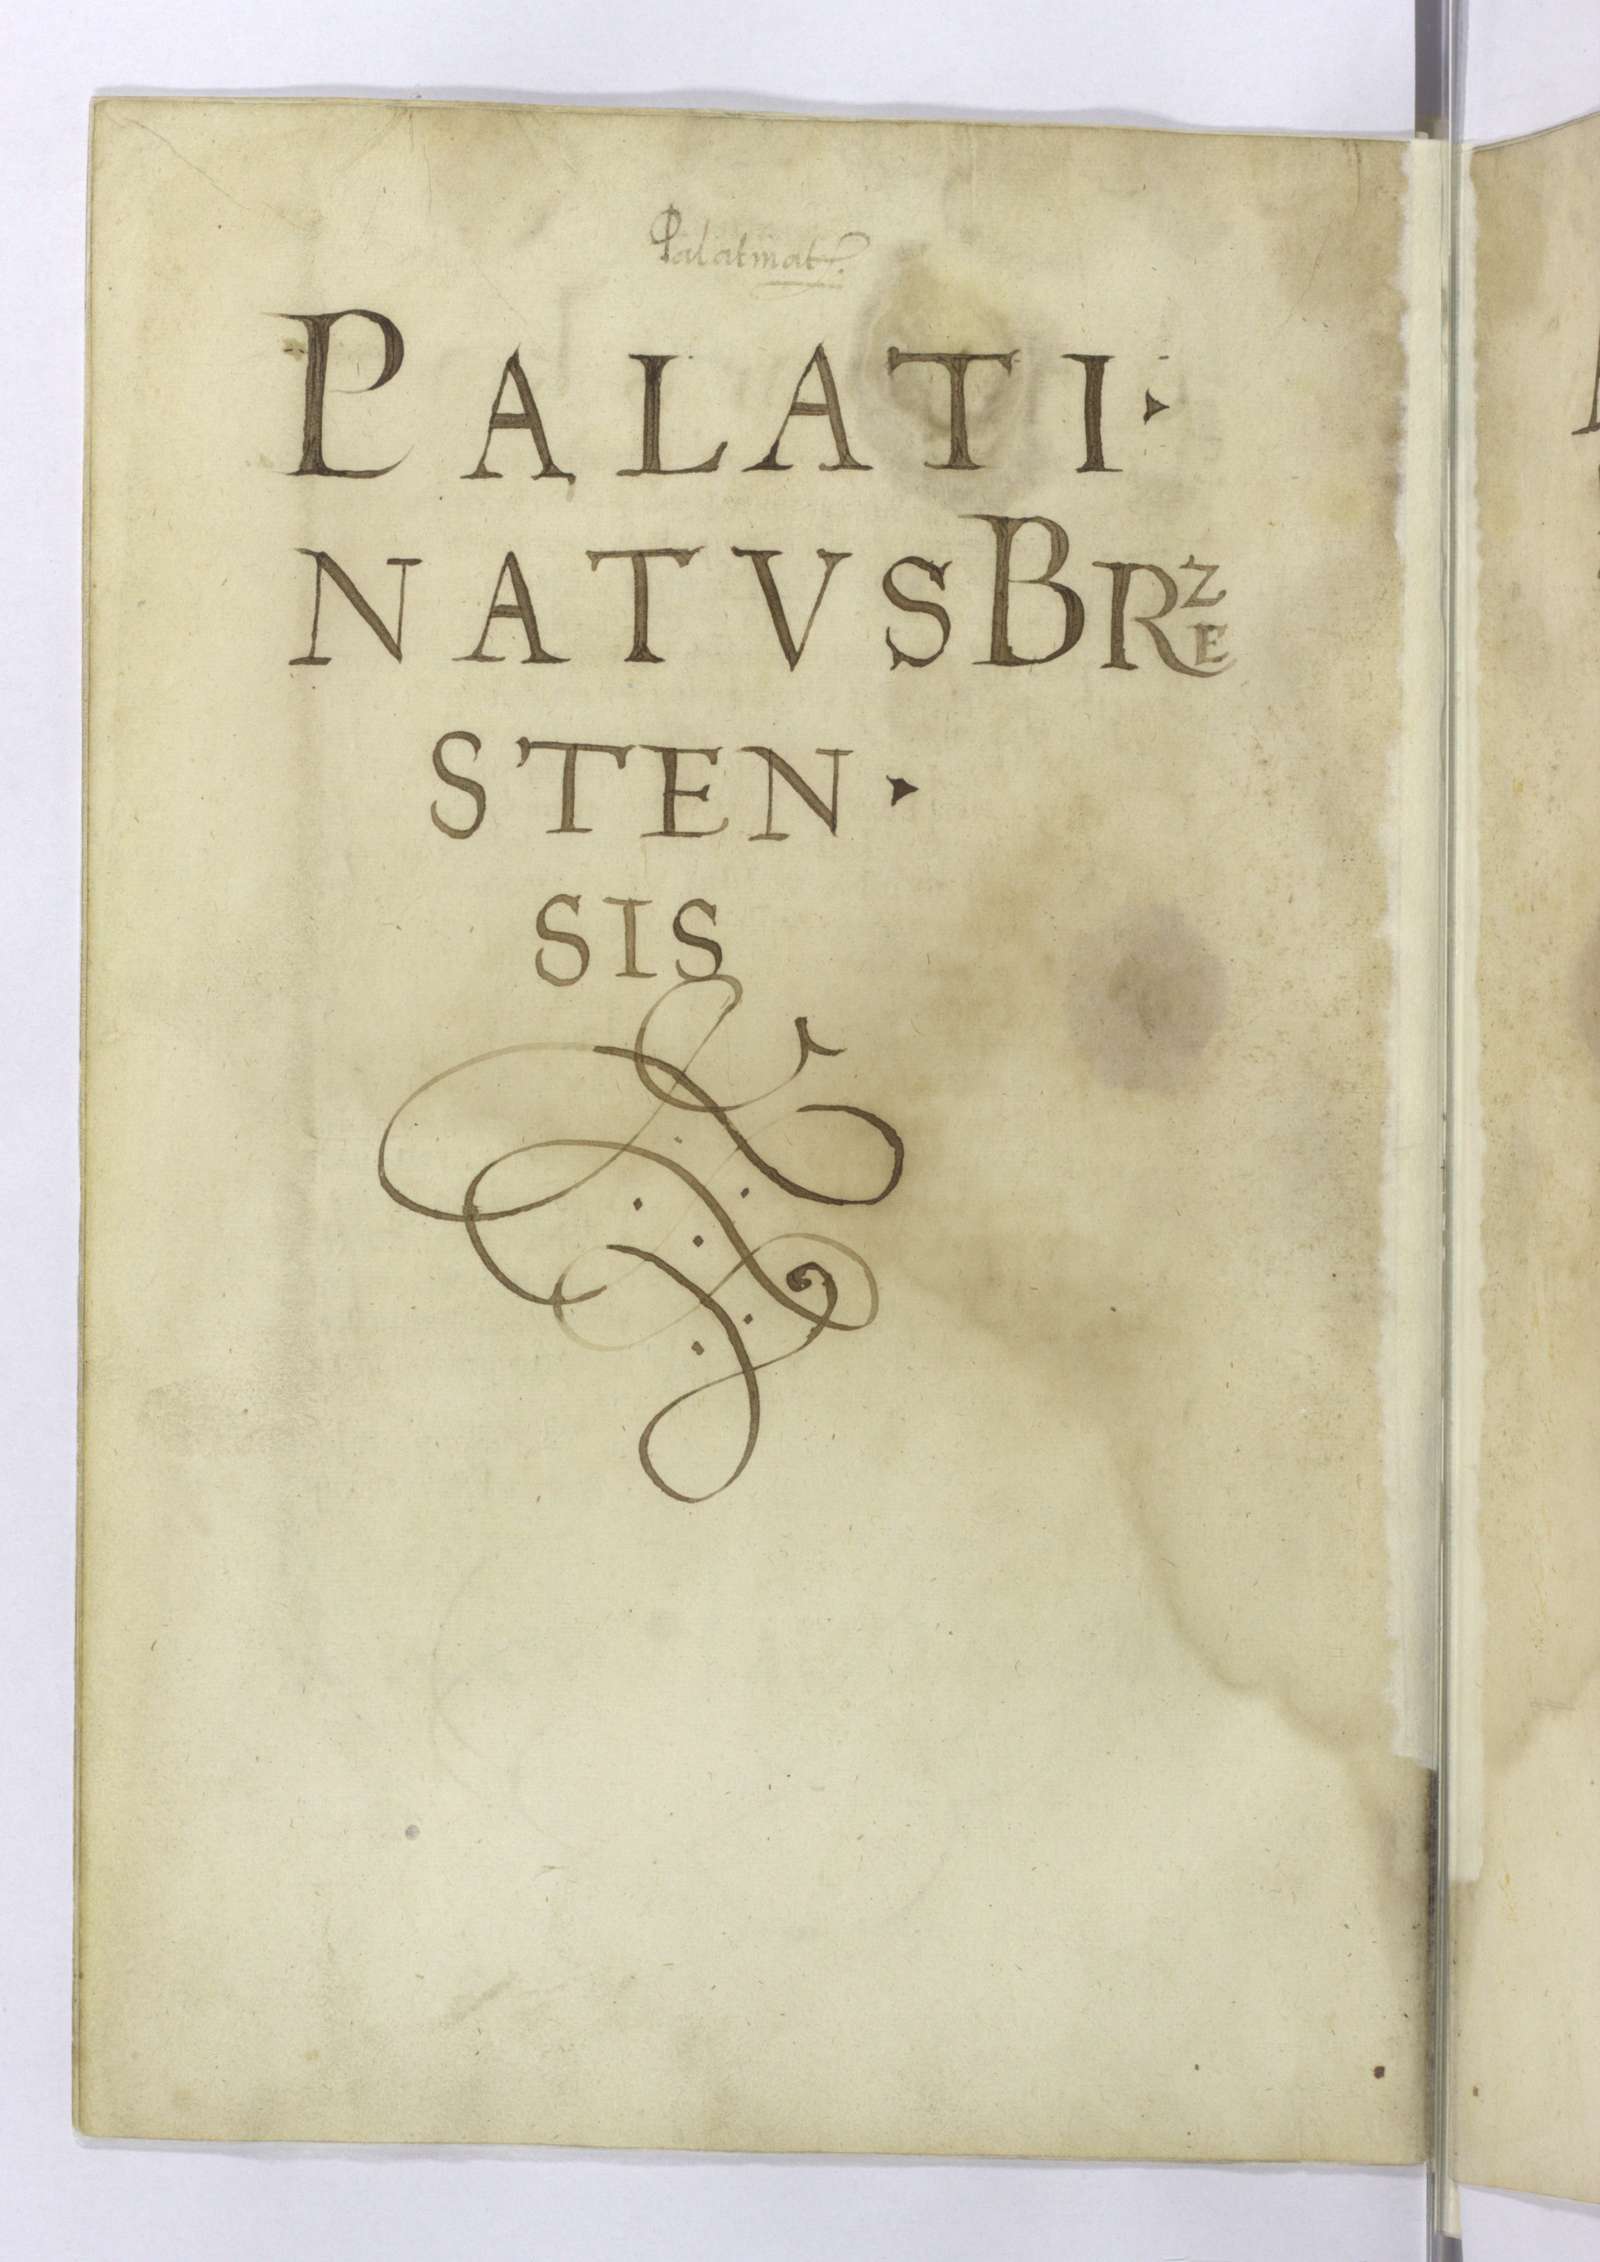 Palatinat9.
PALATI·
NATVS BRZE
STEN·
SIS